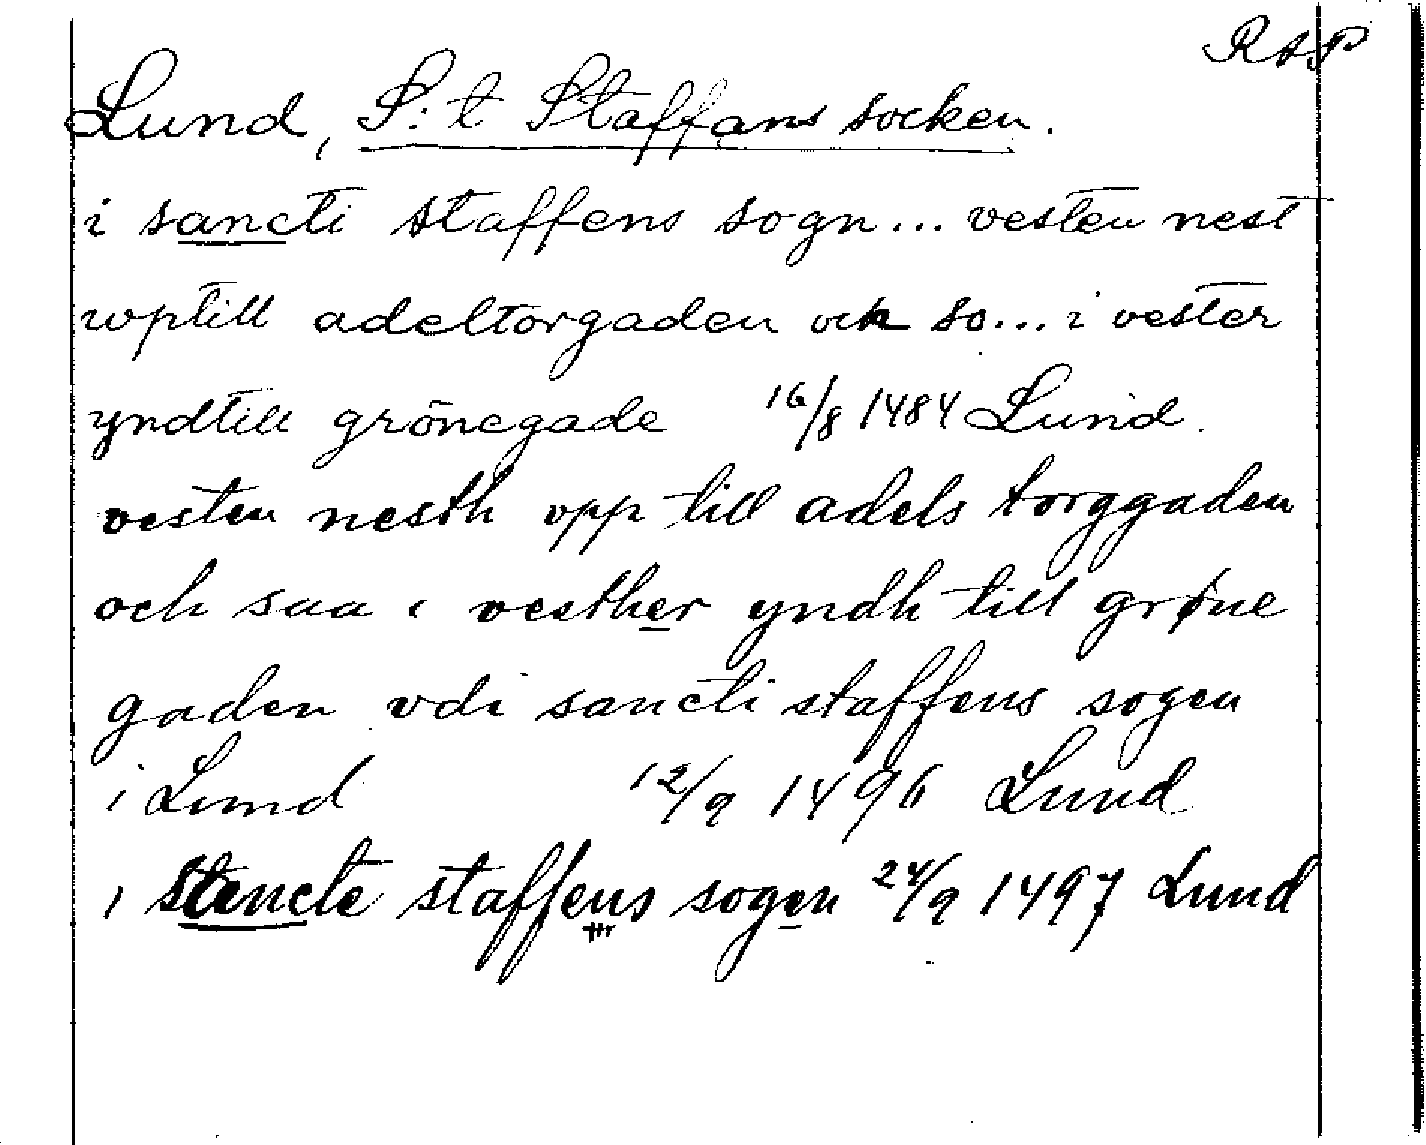 RAP
Lund, S:t Staffans socken.
i sancti staffens sogn... vesten nest
wptill adeltorgaden och so... i vester
yndtill grönegade 16/8 1484 Lund.
vesten nesth opp till adels torggaden
och saa i vesther yndh till grøne
gaden vdi sancti staffens sogen
i Lund 12/9 1496 Lund
i Stencte staffens sogen 24/9 1497 Lund